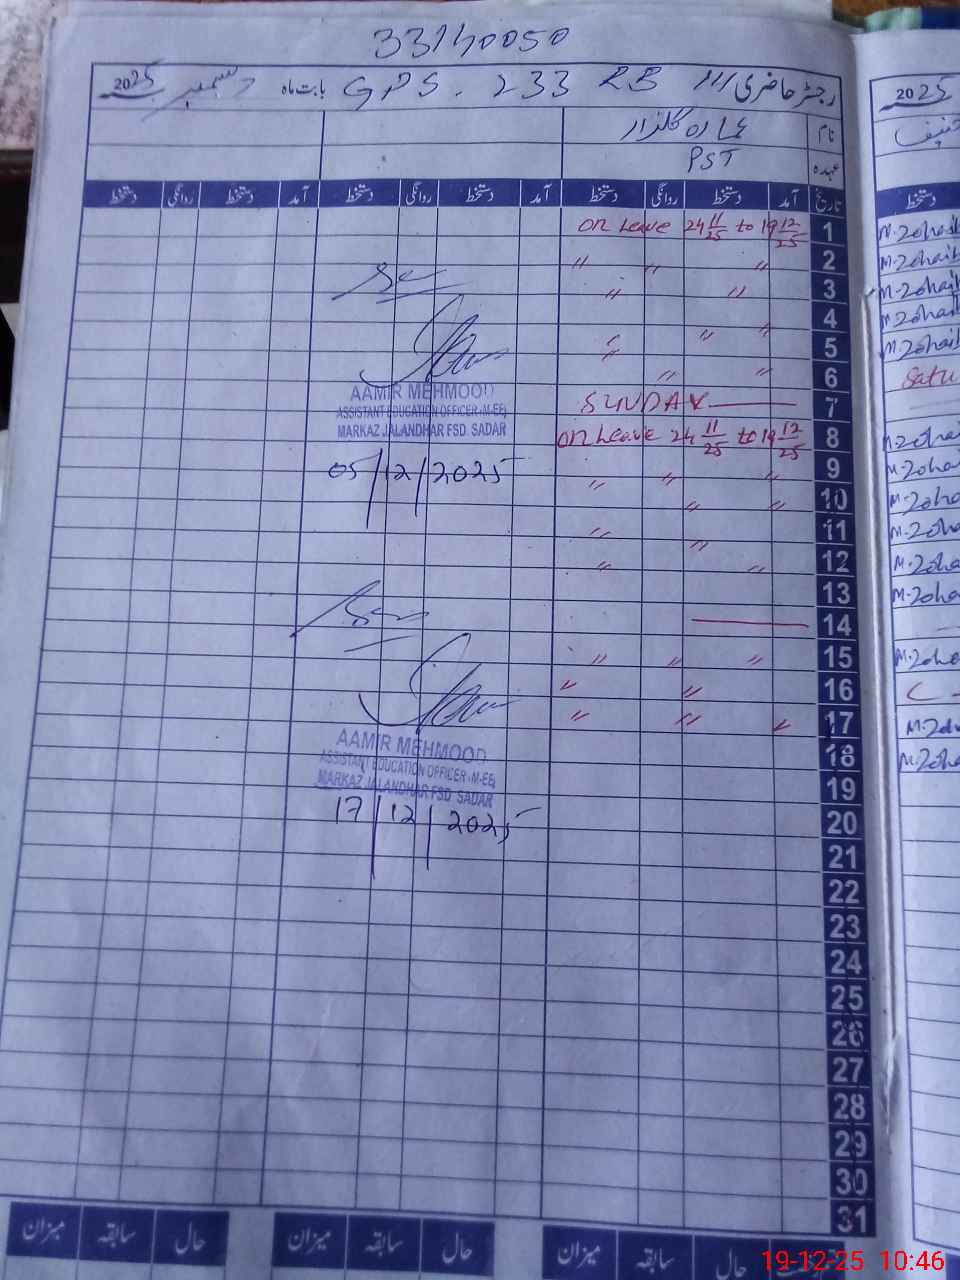 33140050
رجسٹر حاضری GPS. 233 RB بابت ماہ دسمبر 2025
نام عمارہ گلزار
عہدہ PST
تاریخ آمد دستخط روانگی دستخط آمد دستخط روانگی دستخط آمد دستخط روانگی دستخط
1 On Leave 24 11/25 to 19 12/25
2 〃 〃 〃
3 〃 〃
4
5 〃 〃 〃
6 〃 〃
7 SUNDAY
8 On Leave 24 11/25 to 19 12/25
9 〃 〃 〃
10 〃 〃
11 〃 〃
12 〃 〃
13
14
15 〃 〃 〃
16 〃 〃
17 〃 〃 〃
18
19
20
21
22
23
24
25
26
27
28
29
30
31
AAMIR MEHMOOD
ASSISTANT EDUCATION OFFICER (M-EE)
MARKAZ JALANDHAR FSD SADAR
05/12/2025
AAMIR MEHMOOD
ASSISTANT EDUCATION OFFICER (M-EE)
MARKAZ JALANDHAR FSD SADAR
17/12/2025
حال سابقہ میزان حال سابقہ میزان حال سابقہ میزان
2025
حنیف
دستخط
M.Zohaib
M.Zohaib
M.Zohaib
M.Zohaib
M.Zohaib
Satu
M.Zohaib
M.Zohaib
M.Zoha
M.Zoha
M.Zoha
M.Zoha
M.Zoha
M.Zoha
M.Zoha
19-12-25 10:46